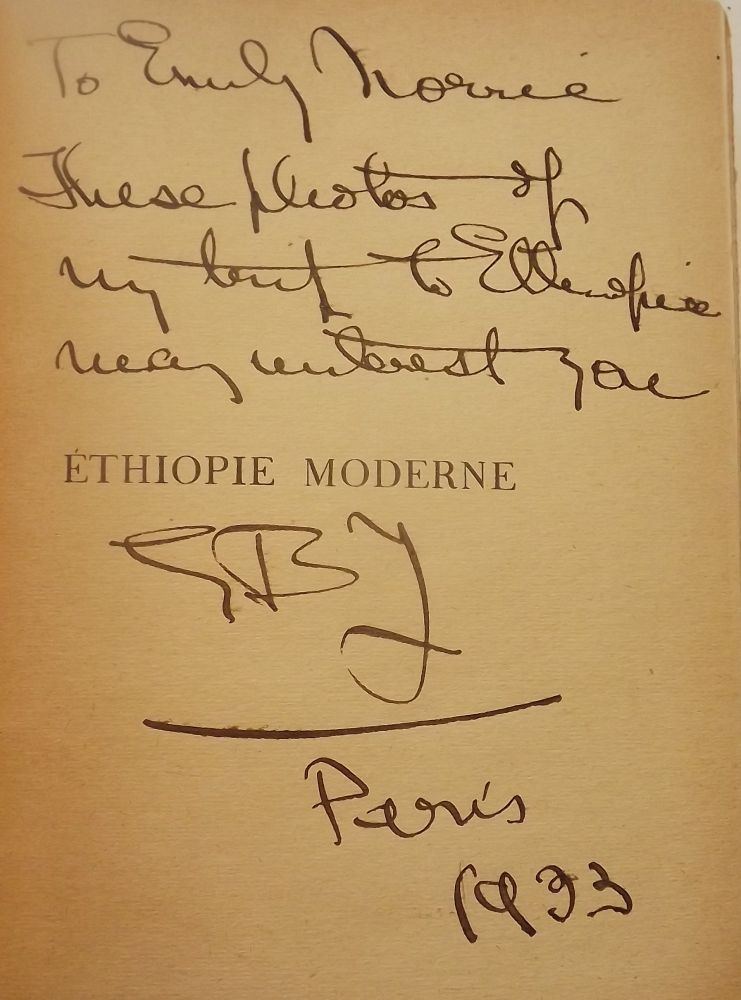 To Emily Norrie
These photos of
my trip to Ethiopia
may interest you
ÉTHIOPIE MODERNE
GBJ
Paris
1933